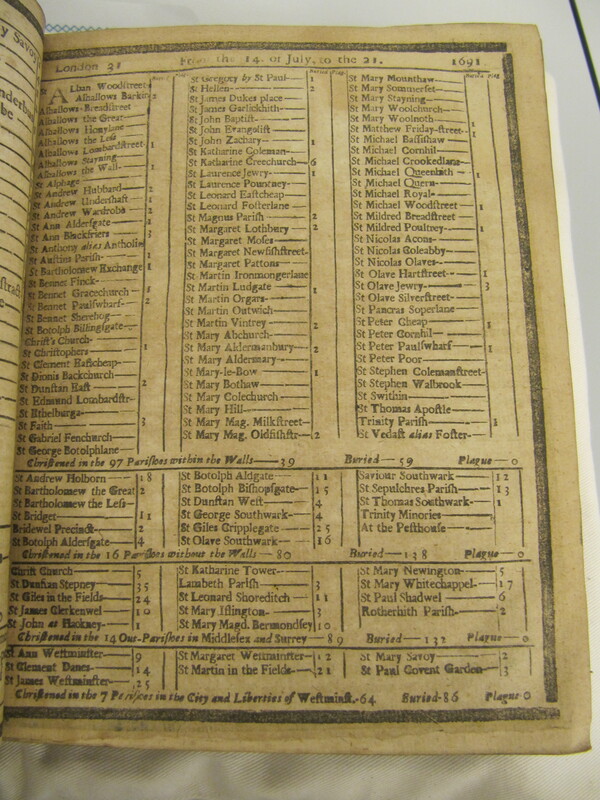 London 31 From the 14. of July, to the 21. 1691
Buried Plag.
St Alban Woodstreet
Alhallows Barking 2
Alhallows-Breadstreet
Alhallows the Great
Alhallows Honylane
Alhallows the Less
Alhallows Lombardstreet 1
Alhallows Stayning
Alhallows the Wall 1
St Alphage
St Andrew Hubbard 2
St Andrew Undershaft 1
St Andrew Wardrobe 2
St Ann Aldersgate 1
St Ann Blackfriers 3
St Anthony alias Antholin
St Austins Parish 1
St Bartholomew Exchange 1
St Bennet Finck
St Bennet Gracechurch 1
St Bennet Paulſwharf 2
St Bennet Sherehog
St Botolph Billingſgate
Chriſt's Church
St Chriſtophers 1
St Clement Eaſtcheap
St Dionis Backchurch
St Dunſtan Eaſt 2
St Edmund Lombardſtr.
St Ethelburga
St Faith 3
St Gabriel Fenchurch
St George Botolphlane
St Gregory by St Paul 1
St Hellen 2
St James Dukes place
St James Garlickhith
St John Baptiſt
St John Evangeliſt
St John Zachary 1
St Katharine Coleman
St Katharine Creechurch 6
St Laurence Jewry 1
St Laurence Pountney
St Leonard Eaſtcheap
St Leonard Foſterlane
St Magnus Pariſh 2
St Margaret Lothbury 2
St Margaret Moſes
St Margaret Newfiſhſtreet
St Margaret Pattons
St Martin Ironmongerlane
St Martin Ludgate 1
St Martin Orgars
St Martin Outwich
St Martin Vintrey 2
St Mary Abchurch
St Mary Aldermanbury 2
St Mary Aldermary
St Mary-le-Bow 1
St Mary Bothaw
St Mary Colechurch
St Mary Hill
St Mary Mag. Milkſtreet
St Mary Mag. Oldfiſhſtr. 2
St Mary Mounthaw
St Mary Sommerſet
St Mary Stayning
St Mary Woolchurch
St Mary Woolnoth 1
St Matthew Friday-ſtreet 1
St Michael Baſſiſhaw
St Michael Cornhil
St Michael Crookedlane
St Michael Queenhith 1
St Michael Quern
St Michael Royal
St Michael Woodſtreet 1
St Mildred Breadſtreet
St Mildred Poultrey 1
St Nicolas Acons
St Nicolas Coleabby
St Nicolas Olaves
St Olave Hartſtreet 1
St Olave Jewry 3
St Olave Silverſtreet
St Pancras Soperlane
St Peter Cheap 1
St Peter Cornhil
St Peter Paulſwharf 1
St Peter Poor
St Stephen Colemanſtreet
St Stephen Walbrook
St Swithin
St Thomas Apoſtle
Trinity Pariſh 1
St Vedaſt alias Foſter
Chriſtened in the 97 Pariſhes within the Walls 39 Buried 59 Plague 0
St Andrew Holborn 18
St Bartholomew the Great 2
St Bartholomew the Leſs
St Bridget 11
Bridewel Precinct 2
St Botolph Alderſgate 4
St Botolph Aldgate 11
St Botolph Biſhopſgate 15
St Dunſtan Weſt 4
St George Southwark 4
St Giles Cripplegate 25
St Olave Southwark 16
Saviour Southwark 12
St Sepulchres Pariſh 13
St Thomas Southwark 1
Trinity Minories
At the Peſthouſe
Chriſtened in the 16 Pariſhes without the Walls 80 Buried 138 Plague 0
Chriſt Church 5
St Dunſtan Stepney 35
St Giles in the Fields 24
St James Clerkenwel 10
St John at Hackney 1
St Katharine Tower
Lambeth Pariſh 3
St Leonard Shoreditch 11
St Mary Iſlington 3
St Mary Magd. Bermondſey 10
St Mary Newington 5
St Mary Whitechappel 17
St Paul Shadwel 6
Rotherhith Pariſh 2
Chriſtened in the 14 Out-Pariſhes in Middleſex and Surrey 89 Buried 132 Plague 0
St Ann Weſtminſter 9
St Clement Danes 14
St James Weſtminſter 25
St Margaret Weſtminſter 12
St Martin in the Fields 21
St Mary Savoy 2
St Paul Covent Garden 3
Chriſtened in the 7 Pariſhes in the City and Liberties of Weſtminſt. 64 Buried 86 Plague 0